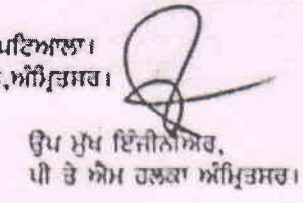 ਪਟਿਆਲਾ।
,ਅੰਮ੍ਰਿਤਸਰ।
ਉਪ ਮੁੱਖ ਇੰਜੀਨੀਅਰ,
ਪੀ ਤੇ ਐਮ ਹਲਕਾ ਅੰਮ੍ਰਿਤਸਰ।